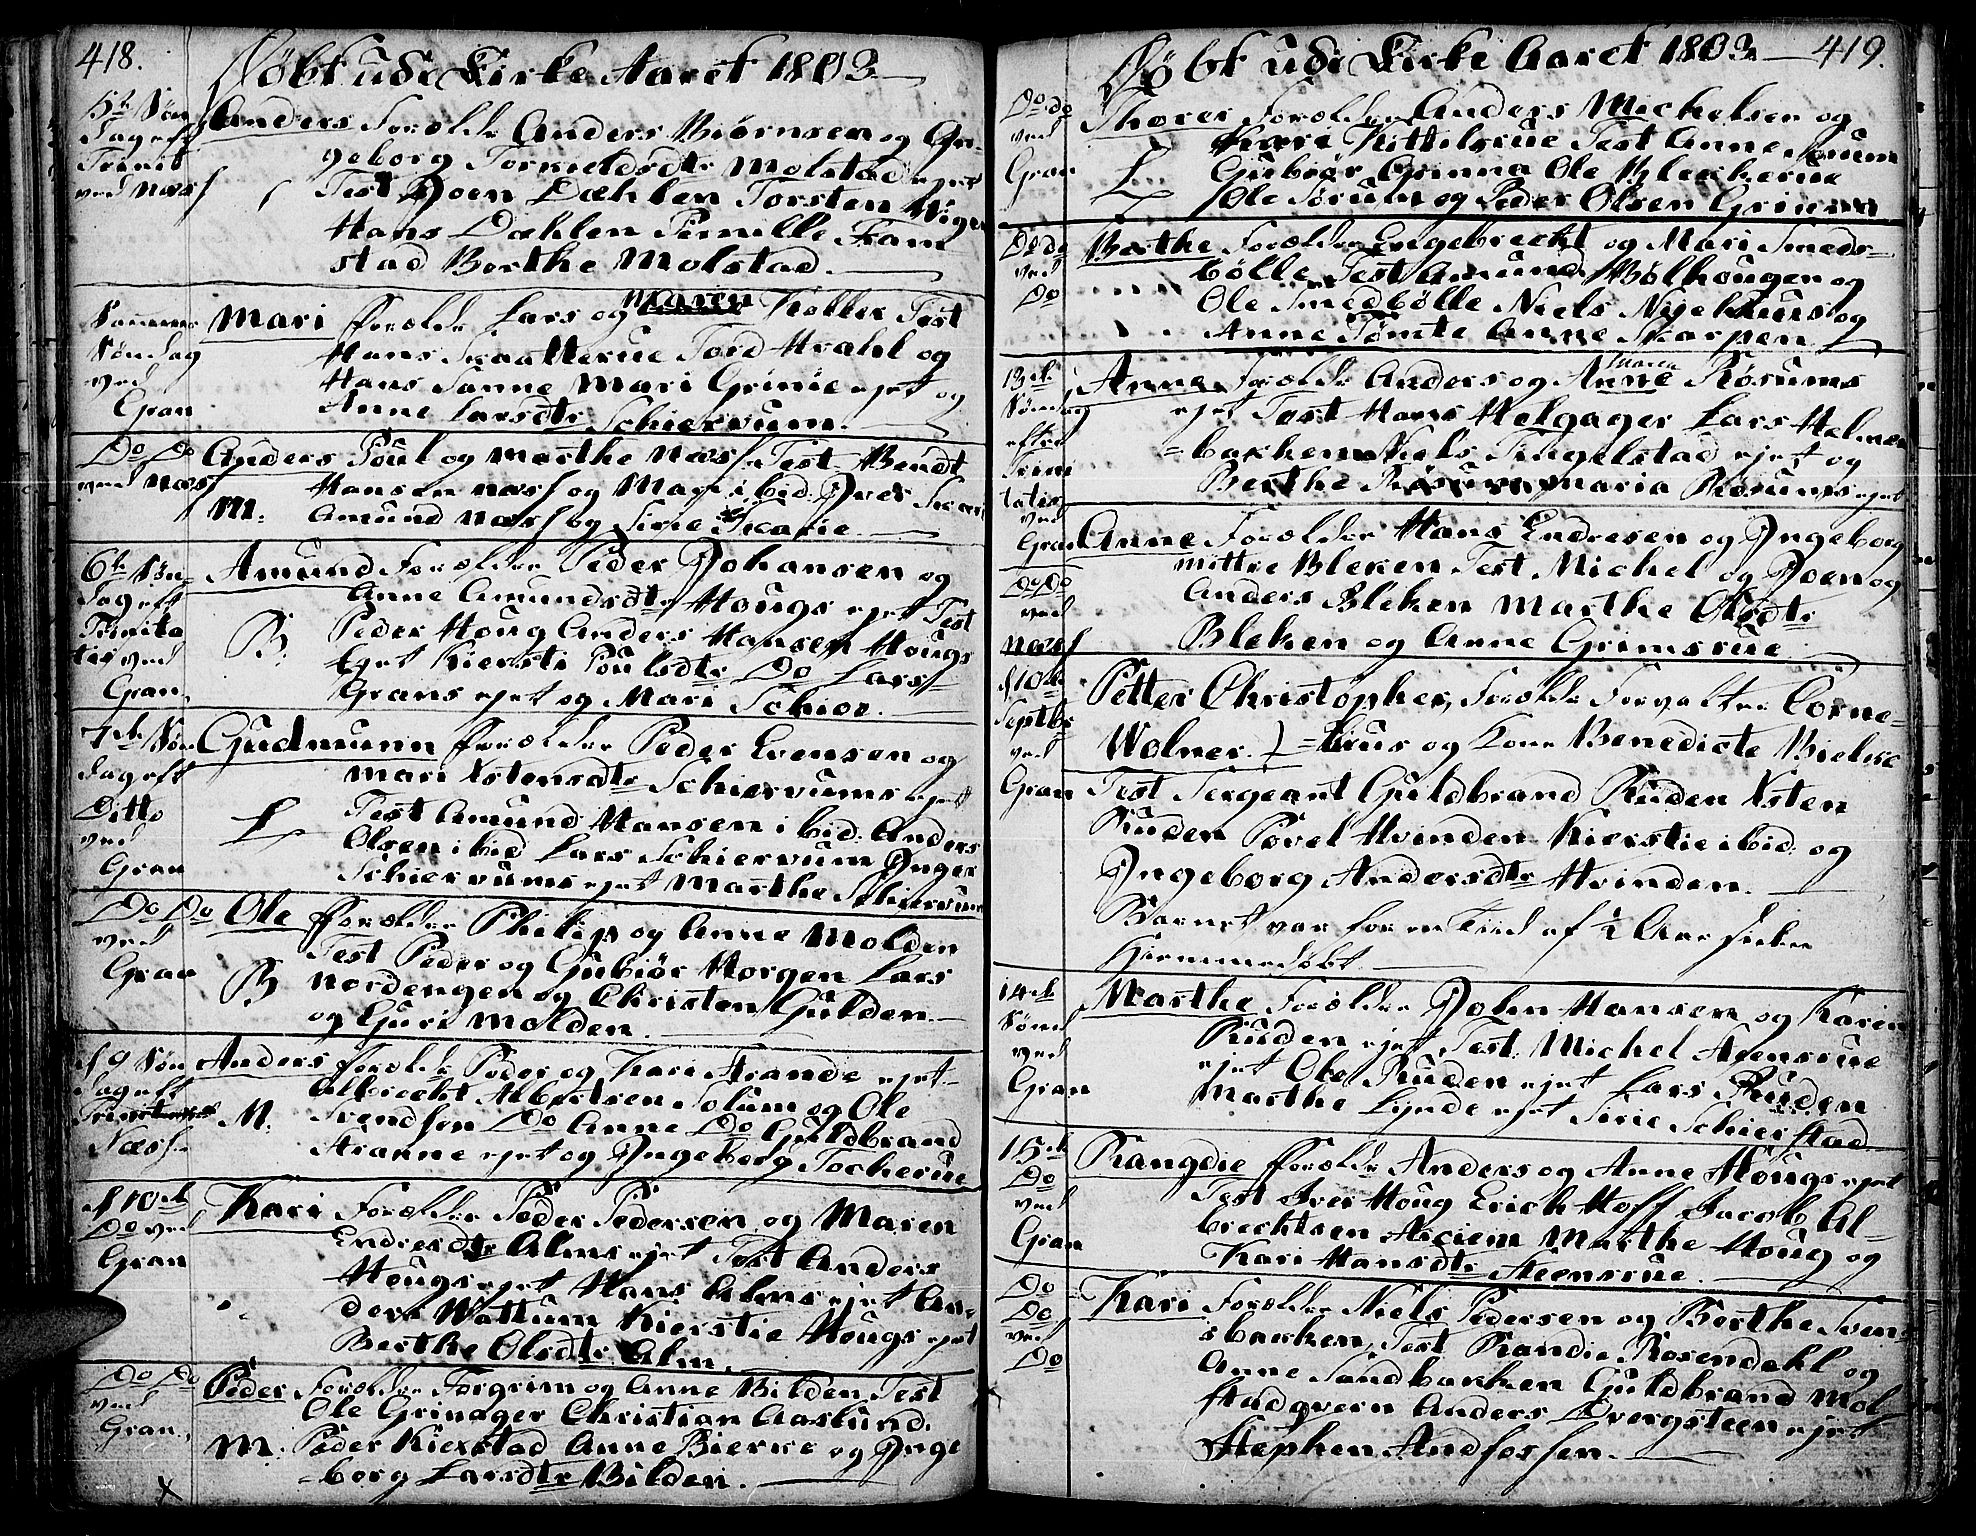 418.
Döbt udi Kirke Aaret 1803
5te Søn
dag eft
Trinit
ved Næss
Anders Forældre Anders Biørnsen og
geborg Torkieldsdtr Molstad ejet
Test Joen Dæhlen Torsten
Hans Dæhlen Pernille Fram
stad Berthe Molstad.
Sammes
Søndag
ved
Gran
Mari Forældre Lars og Maren Koller Test
Hans Sraatterue Tord Hvahl og
Hans Sanne Mari Grinie ejet og
Anne Larsdtr Schiervum.
Do Do
ved Næss
Anders Poul og Marthe Næss Test Bendt
Hansen Næss og Mari ibid. Iver
M. Amund Næss og Sirie Skarie
6te Søn
dag eft
Trinita
tis ved
Gran
Amund Forældre Peder Johansen og
Anne Amundsdtr Hougs ejet Test
B. Peder Houg Anders Hansen Hougs
ejet Kiersti Poulsdtr Do Lars
Grans ejet og Mari Schiøe.
7de Søn
dag eft
Ditto
ved
Gran
Gudmunn Forældre Peder Evensen og
Mari Xstensdtr Schiervums ejet
L Test Amund Hansen ibid. Anders
Olsen ibid Lars Schiervum Inger
Schiervums ejet Marthe Schiervum
Do Do
ved
Gran
Ole Forældre Philip og Anne Molden
Test Peder og Gubiør Horgen Lars
B Nordengen og Christen Gulden
og Guri Molden
d 9 Søn
dag eft
Næss
Anders Forældre Peder og Kari Strande ejet
Albrecht Albertsen Solum og Ole
M. Svendsen Do Anne Do Guldbrand
Stranne ejet og Ingeborg Tocherue
d 10de
Do ved
Gran
Kari Forældre Peder Pedersen og Maren
Endresdtr Alms ejet Test Anders
Hougs ejet Hans Alms ejet An-
ders Wattum Kierstie Hougs ejet
Berthe Olsdtr Alm.
Do Do
ved
Gran,
Peder Forældre Torgrim og Anne Bilden Test
Ole Grinager Christian Aaslund.
M. Peder Kiexstad Anne Bierke og Inge
=borg Larsdtr Bilden.
Döbt udi Kirke Aaret 1803 — 419.
Do do
ved
Gran
Thorer Forældre Anders Michelsen og
Kari Kittelsrue Test Anne Sørum
L Gubiør Grinna Ole Bleckerue
Ole Sørum og Peder Olsen Grinna
Do do
ved
Do
Berthe Forældre Engebrecht og Mari Smeds-
bølle Test Amund Bølhougen og
Ole Smedbølle Niels Nigehuus og
Anne Tømte Anne Skarpen
13de
Søndag
efter
Trini
tatis
ved
Gran
Maren
Anne Forældre Anders og Anne Røsums
ejet Test Hans Helgager Lars Helmen
=barken Niels Tingelstad ejet og
Berthe Røsum Maria Røsums ejet
Do Do
ved
Næss
Anne Forældre Hans Endresen og Ingeborg
mittre Bleken Test Michel og Joen og
Anders Bleken Marthe Olsdtr
Bleken og Anne Grimsrue
d 10de
Septbr
ved
Gran
Petter Christopher, Forældre Forvalter Corne-
Wolner. =lius og Kone Benedicte Bielke
Test Sergeant Guldbrand Ruden Xsten
Ruden Povel Hvinden Kierstie ibid. og
Ingeborg Andersdtr Hvinden.
Barnet var for en Tiid af ½ Aar siden
Hiemmedøbt
14de
Sønd
ved
Gran
Marthe Forældre John Hansen og Karen
Ruden ejet Test. Michel Steensrue
ejet Ole Ruden ejet Lars Ruden
Marthe Lynde ejet Sirie Schierstad
15de
Do
ved
Gran
Rangdie Forældre Anders og Anne Hougs ejet
Test Iver Houg Erich Hoff Jacob Al-
brechtsen Marthe Houg og
Kari Hansdtr Steensrue.
Do
Do
ved
Do
Kari Forældre Niels Pedersen og Berthe Sven
sbakken, Test Randie Rosendahl og
Anne Sandbakken Guldbrand Mol
stadqvern Anders Dvergsteen ejet
Stephen Andfossen.